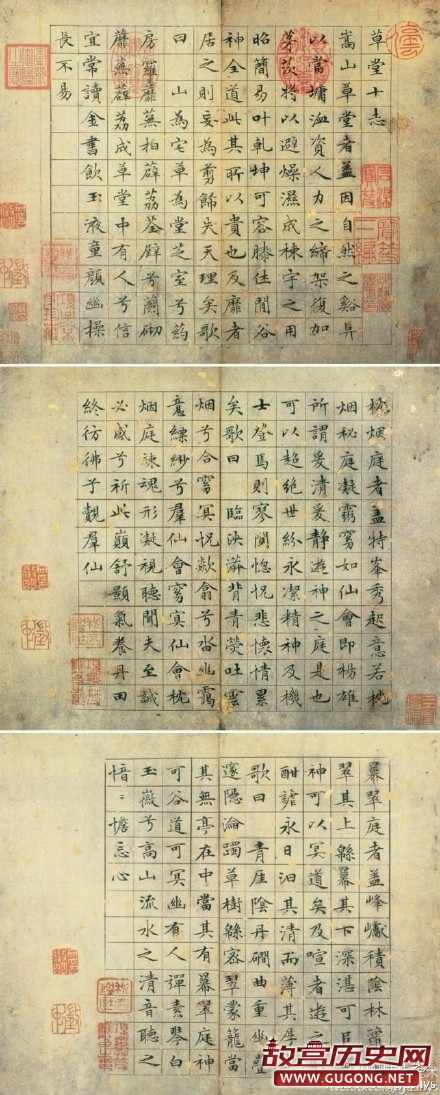 草堂十志
嵩山草堂者盖因自然之谿阜
以當墉洫資人力之締架復加
茅茨將以避燥濕成棟宇之用
昭簡易叶乾坤可容膝休閒谷
神全道此其所以貴也及靡者
居之則妄為剪飾失天理矣歌
曰 山為宅草為堂芝室兮葯
房羅蘼蕪拍薜荔荃壁兮蘭砌
蘼蕪薜荔成草堂中有人兮信
宜常讀金書飲玉液童顏幽操
長不易
枕烟庭者盖特峯秀起意若枕
烟秘庭凝虛窅如仙會即楊雄
所謂爰清爰靜遊神之庭是也
可以超絕世紛永潔精神及機
士登焉則寥闃惝怳悲懷情累
矣歌曰 臨泱漭背青熒吐雲
烟兮合窅冥怳欻翕兮沓幽靄
意縹緲兮羣仙會窅冥仙會枕
烟庭竦魂形凝視聽聞夫至誠
必感兮祈此巔舒顥氣養丹田
終彷彿兮覿羣仙
冪翠庭者盖峰巘積陰林蘿
翠其上緜冪其下深湛可
神可以冥道矣及喧者遊之
酣謔永日汩其清而薄其厚
歌曰 青崖陰丹磵曲重幽疊
邃隱淪躅草樹緜密翠蒙籠當
其無亭在中當其有冪翠庭神
可谷道可冥幽有人彈素琴白
玉徽兮高山流水之清音聽之
愔〻憺忘心
故宫历史网
www.GUGONG.net